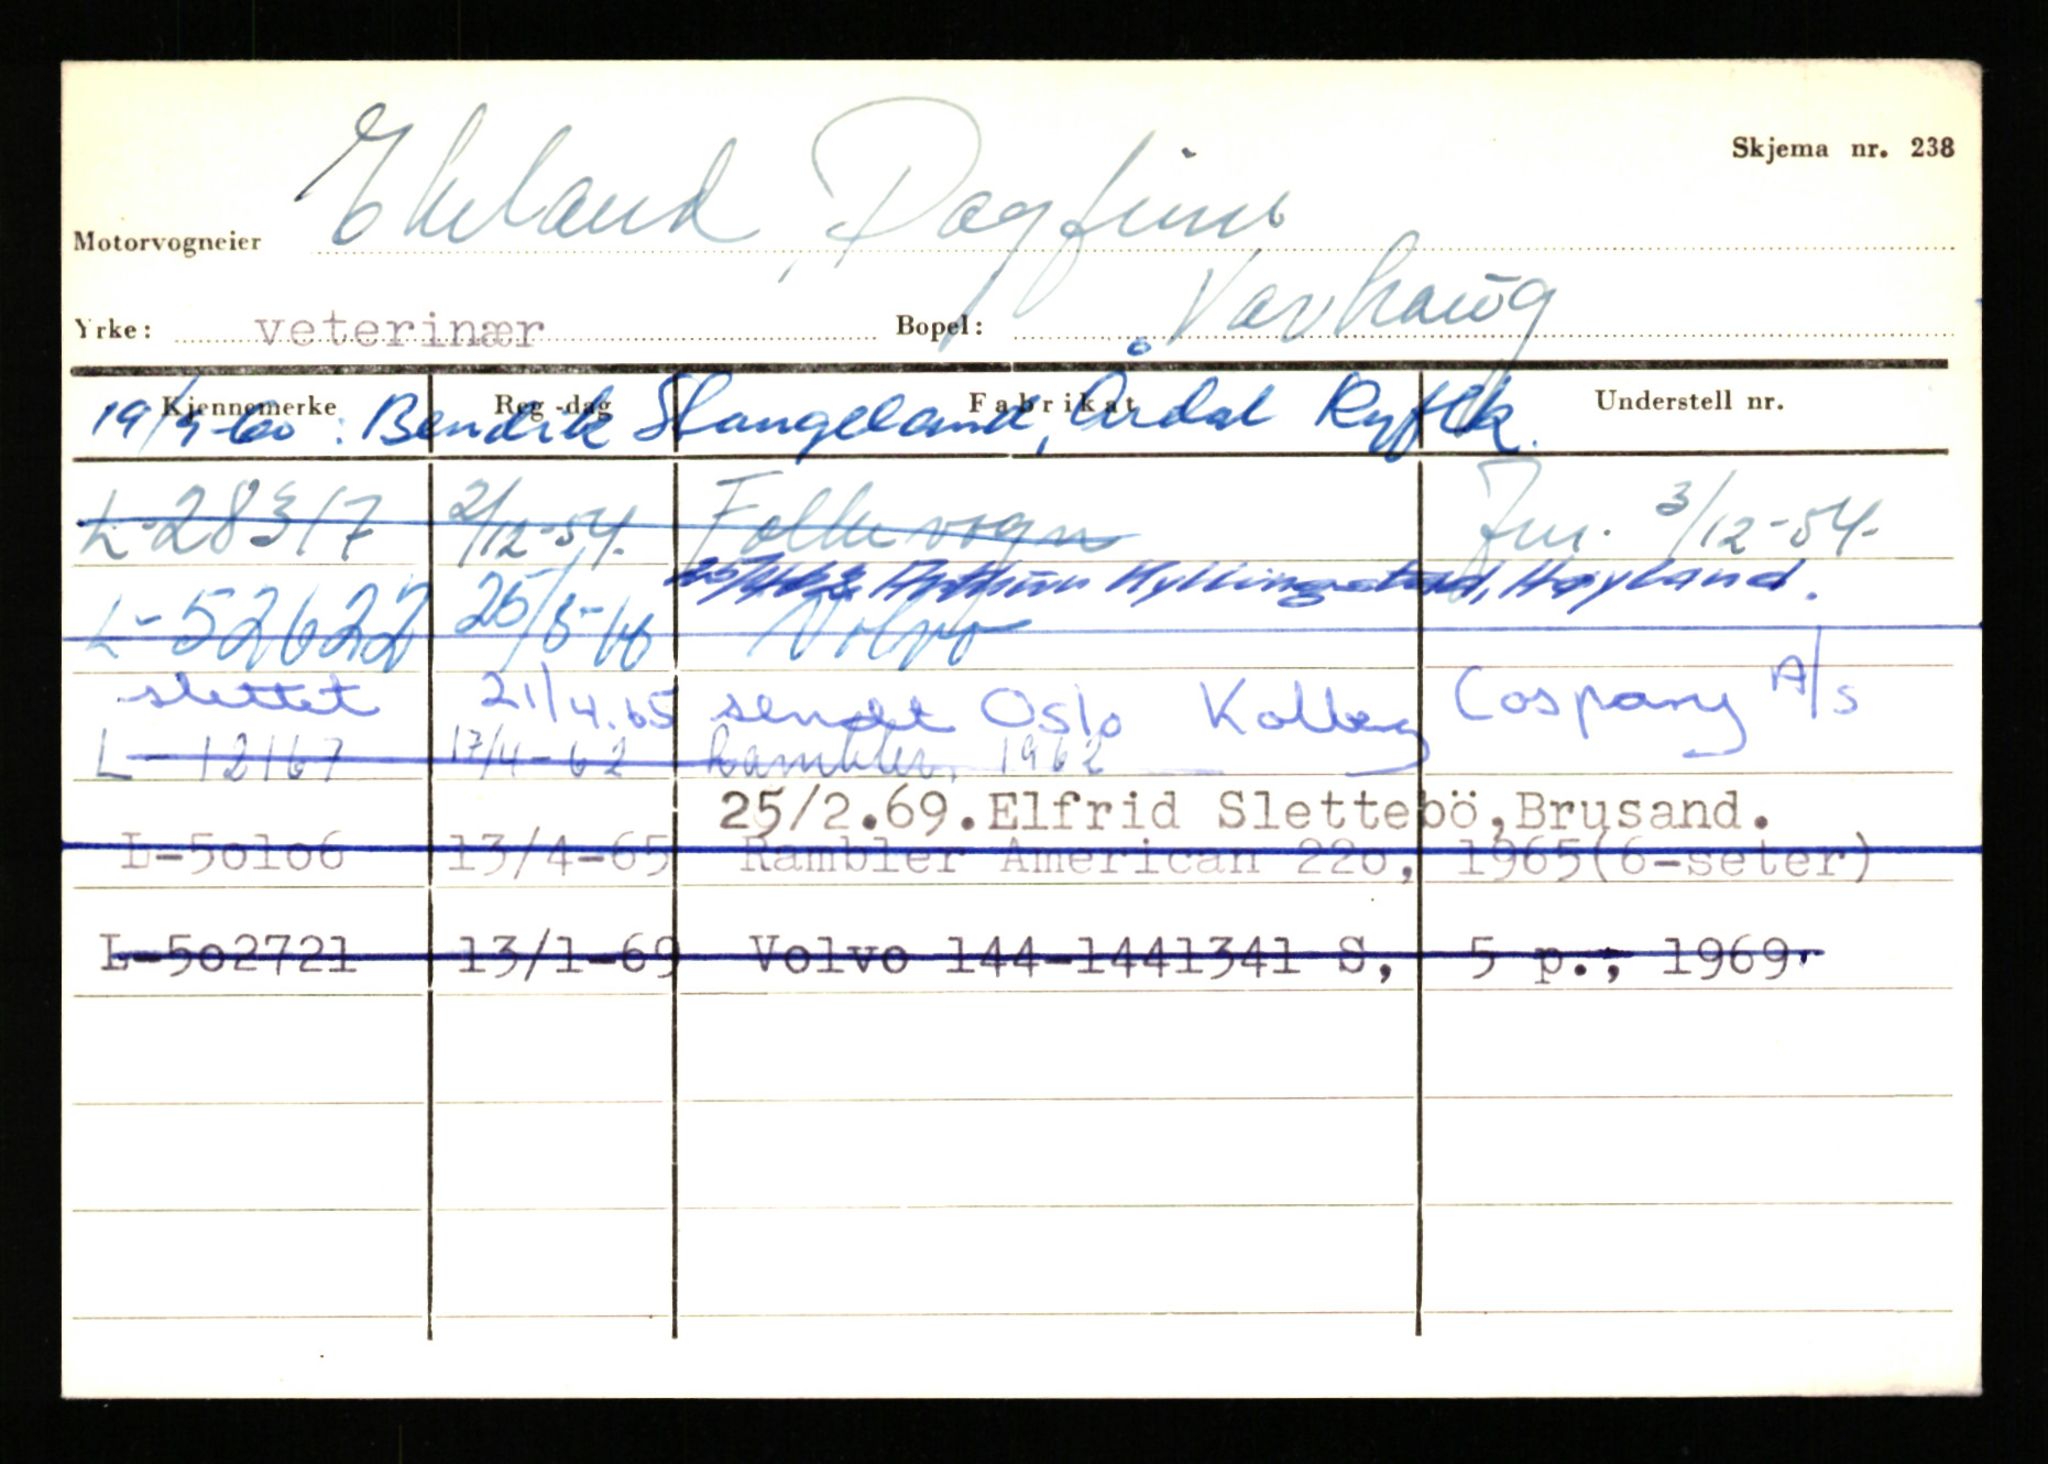 Skjema nr. 238
Motorvogneier Ekeland, Dagfinn
Yrke: veterinær Bopel: Varhaug
Kjennemerke Reg.-dag Fabrikat Understell nr.
19/9-60: Bendik Stangeland, Årdal Ryflk.
L-28317 2/12-54. Folkevogn Jnr. 3/12-54.
Arthur Hyllingestad, Høyland.
L-52622 25/8- Volvo
slettet 21/4.65 sendt Oslo Kolberg Caspary A/s
L-12167 17/4-62 Rambler, 1962
25/2.69.Elfrid Slettebö,Brusand.
L-50106 13/4-65 Rambler American 220, 1965(6-seter)
L-502721 13/1-69 Volvo 144-1441341 S, 5 p., 1969.